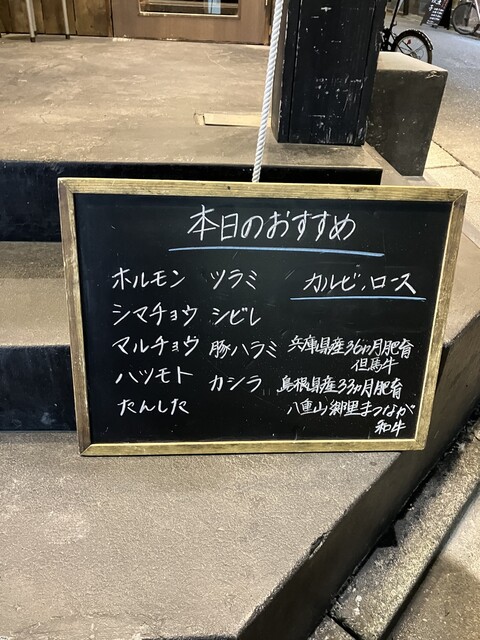 本日のおすすめ
ホルモン ツラミ
シマチョウ シビレ
マルチョウ 豚ハラミ
ハツモト カシラ
たんした
カルビ、ロース
兵庫県産36ヶ月肥育
但馬牛
島根県産33ヶ月肥育
八重山郷里まつなが
和牛